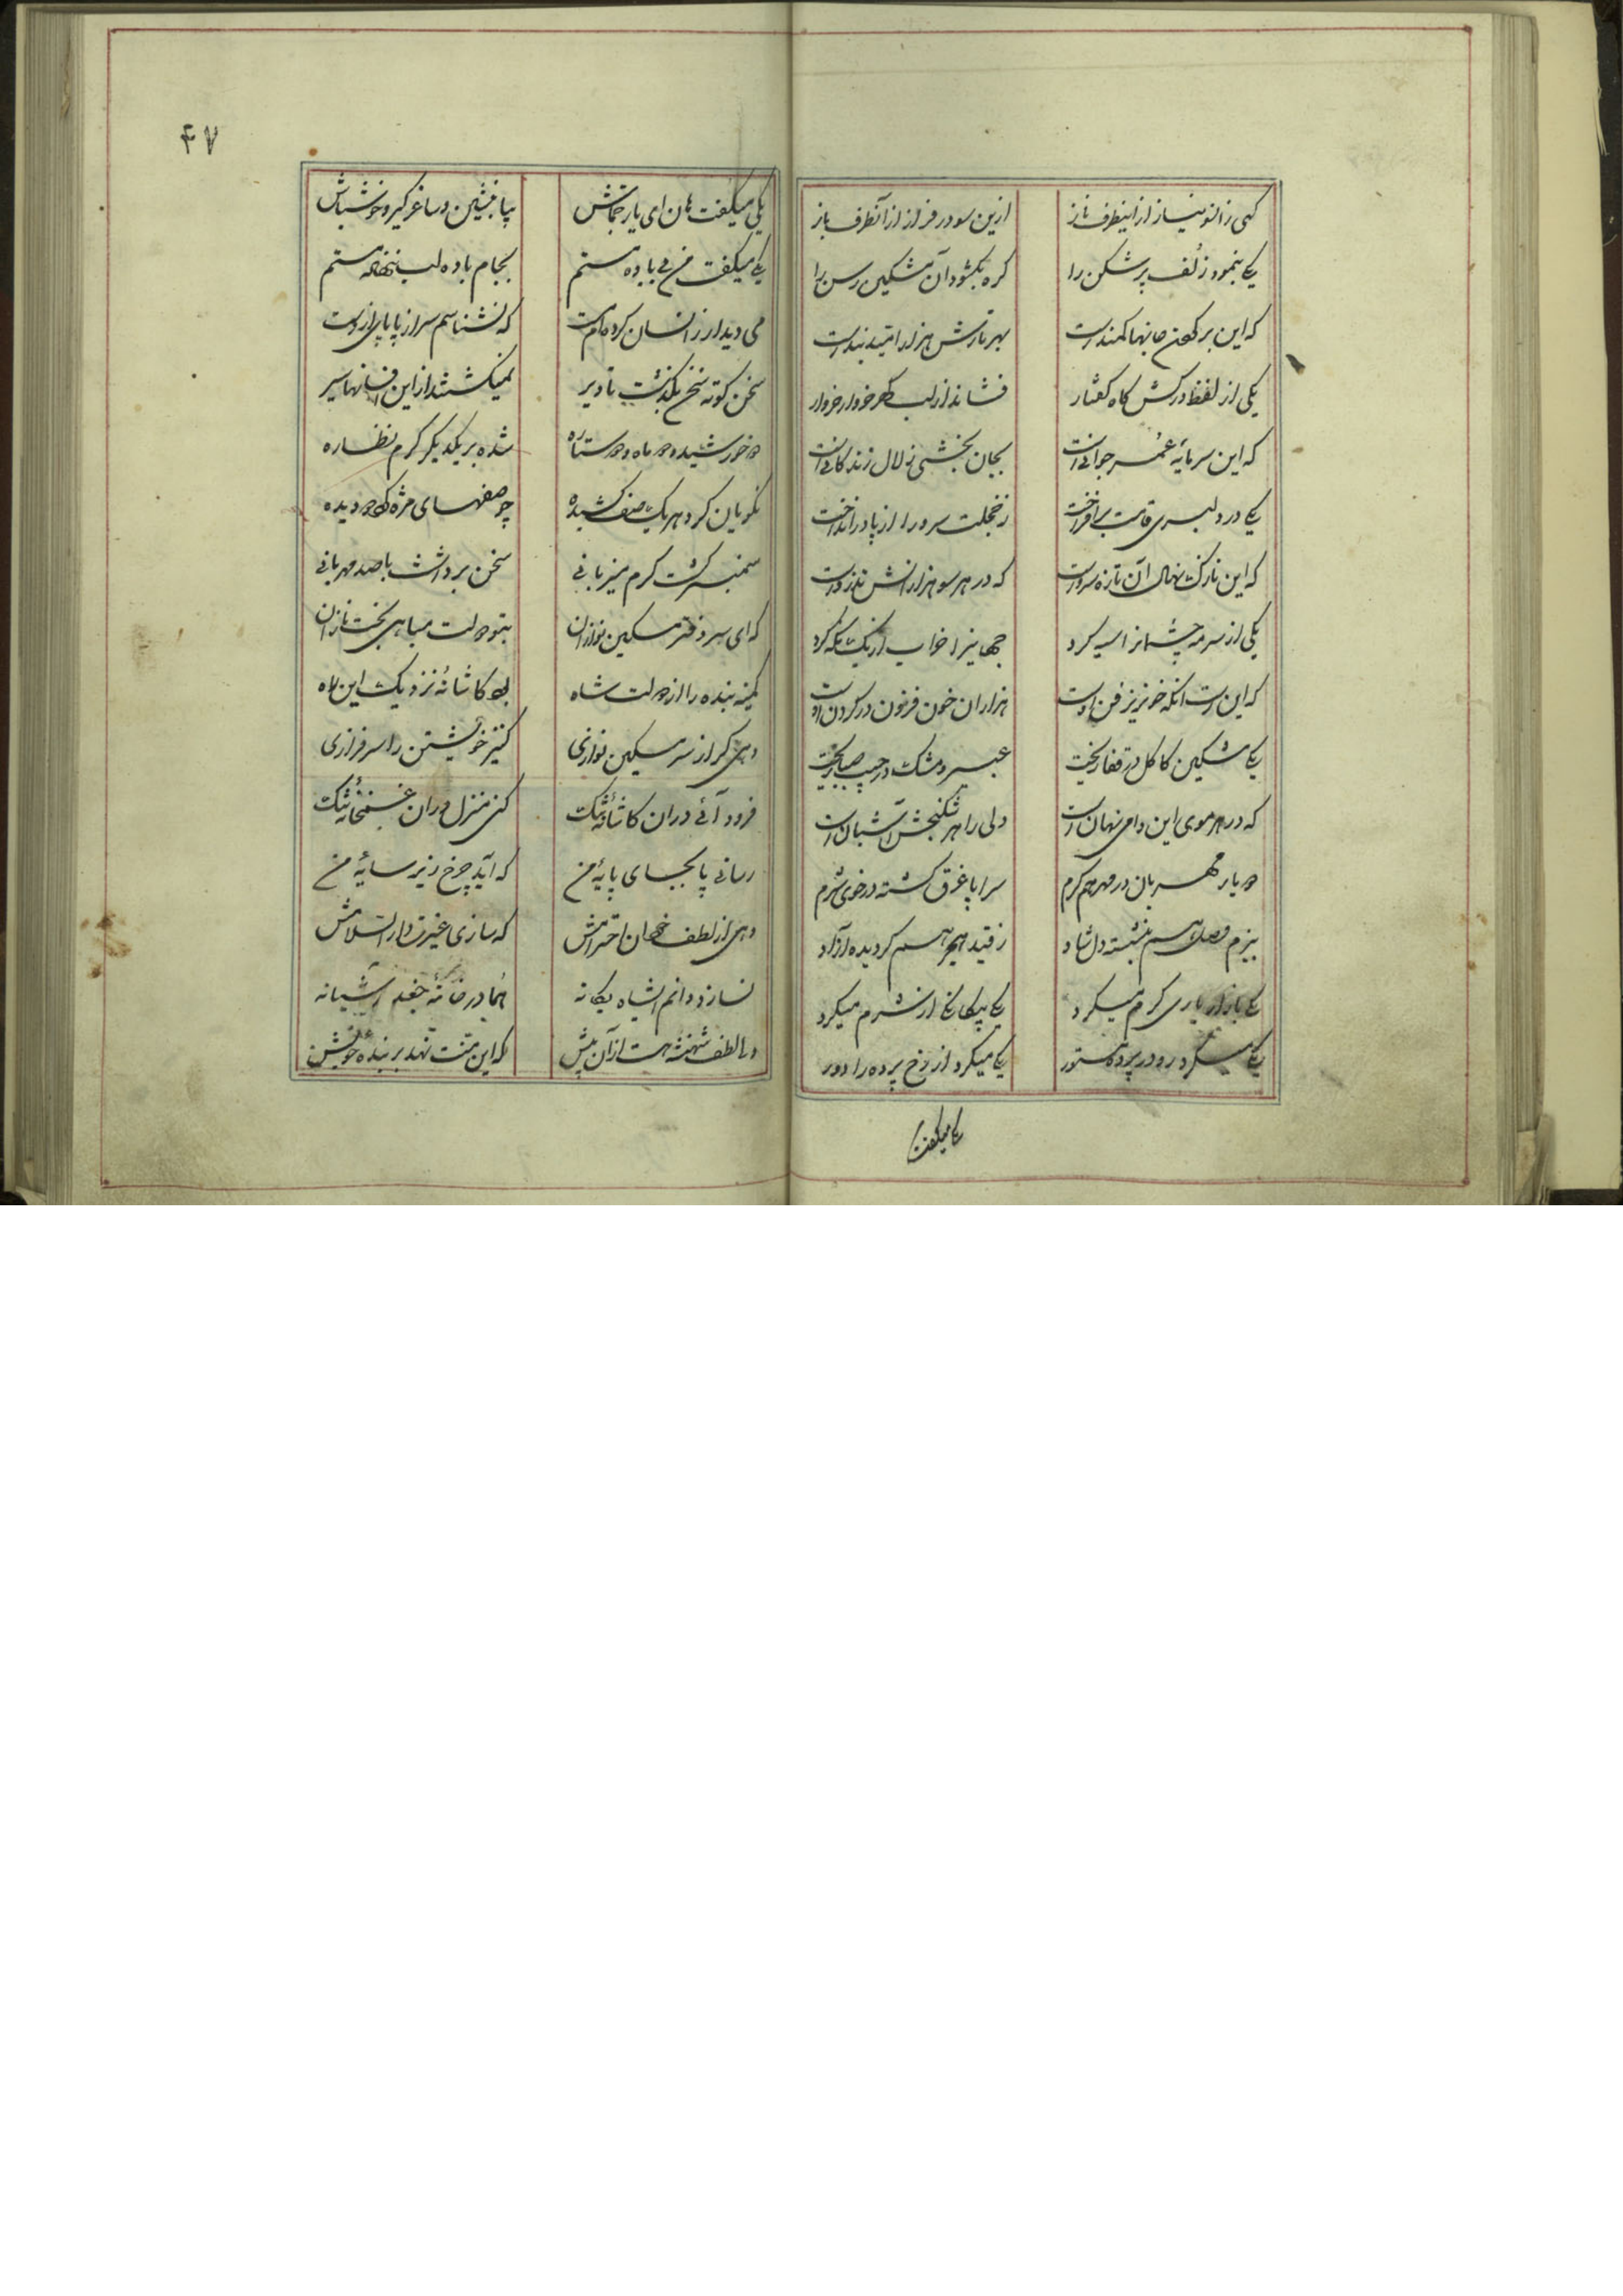 کهی زانو نیاز از اینطرف ناز ازین سو در فراز از آنطرف باز
یکی بنمود زلف پر شکن را کره بکشود آن مشکین رسن را
که این بر کردن جانها کمندست بهر تارش هزار امید بندست
یکی از لفظ درکش کاه کفتار فشاند از لب کهر خروار خروار
که این سرمایهٔ عمر جوانیست بجان بخشی زلال زندکانیست
یکی در دلبری قامت برافراخت ز خجلت سرو را از پا درانداخت
که این نازک نهال آن تازه سروست که در هر سو هزارانش تذروست
یکی از سرمه چشمانرا سیه کرد جهانیرا خراب از یک نکه کرد
که این است آنکه خونریزی فن اوست هزاران خون فزون در کردن اوست
یکی مشکین کاکل در قفا ریخت عبیر و مشک در جیب صبا ریخت
که در هر موی این دامی نهان است دلی را هر شکنجش آشیان است
دو یار مهربان در مهر هم کرم سراپا غرق کشته در خوی شرم
ببزم وصل هم بنشسته دل شاد ز قید هجر هم کردیده آزاد
یکی بازار یاری کرم میکرد یکی بیکانکی از شرم میکرد
یکی میکرد رو در پرده مستور یکی میکرد از رخ پرده را دور
یکی میکفت
۴۷
یکی میکفت هان ای یار جماش بیا بنشین و ساغر کیر و خوش باش
یکی میکفت من بی باده مستم بجام باده لب ننهاده مستم
می دیدار زانسان کرده ام مست که نشناسم سر از پا پای از دست
سخن کوته سخن بکذشت تا دیر نمیکشتند از این افسانها سیر
دو خورشید و دو ماه و دو ستاره شده بر یکدیکر کرم نظاره
نکویان کرد هر یک صف کشیده چو صفهای مژه کرد دو دیده
سمنبر کشت کرم میزبانی سخن برداشت با صد مهربانی
که ای سر دفتر مسکین نوازان بتو دولت مباهی بخت نازان
کمینه بنده را از دولت شاه بود کاشانهٔ نزدیک این راه
دهی کر از سر مسکین نوازی کنیز خویشتن را سرفرازی
فرود آئی در آن کاشانهٔ تنک کنی منزل در آن غمخانهٔ تنک
رسانی پا بجای پایهٔ من که آید چرخ زیر سایهٔ من
دهی از لطف چندان احترامش که سازی غیرت دار السلامش
نسازد دانم ای شاه یکانه هما در خانهٔ جغد آشیانه
ولی لطف شهنشه هست از آن بیش که این منت نهد بر بندهٔ خویش